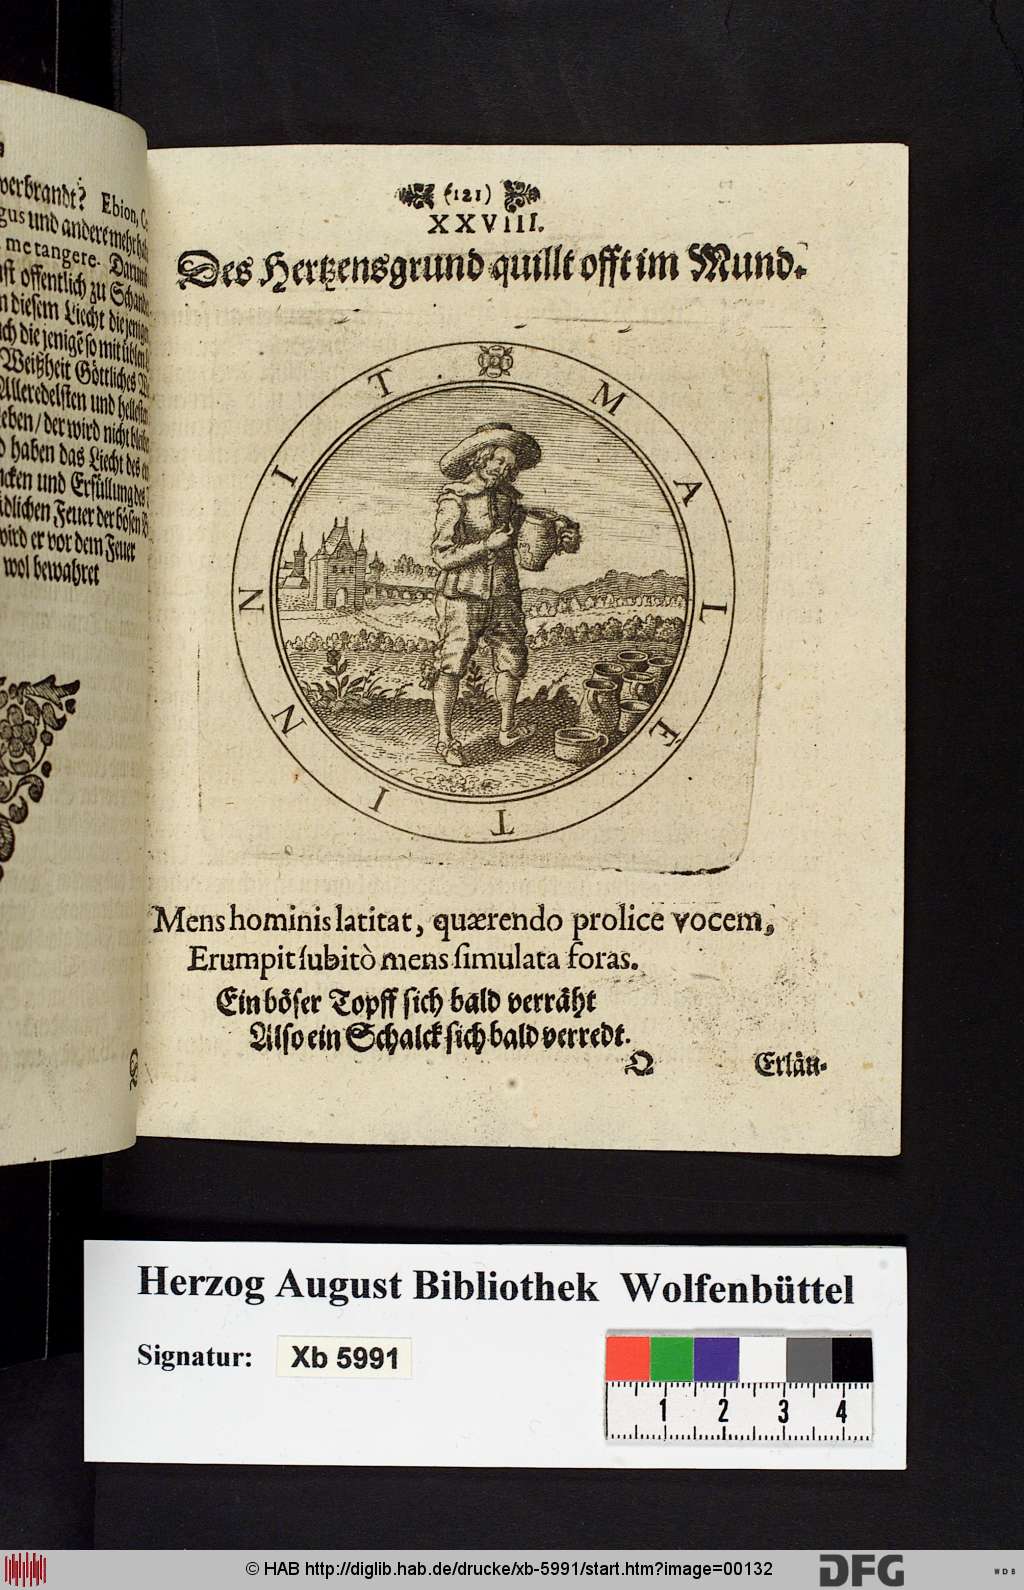 verbrandt? Ebion,
und andere mehr
me tangere. Darum
offentlich zu
diesem Liecht die
die jenige so mit
Weißheit Göttliches
Alleredelsten und
der wird nicht
haben das Liecht des
und Erfüllung des
Feuer der bösen
wird er vor dem Feuer
wol bewahret
(121)
XXVIII.
Des Hertzensgrund quillt offt im Mund.
MALE TINNINIT
Mens hominis latitat, quærendo prolice vocem,
Erumpit ſubitò mens ſimulata foras.
Ein böser Topff sich bald verräht
Also ein Schalck sich bald verredt.
Q
Erlän-
Herzog August Bibliothek Wolfenbüttel
Signatur: Xb 5991
1 2 3 4
© HAB http://diglib.hab.de/drucke/xb-5991/start.htm?image=00132
DFG
WDB